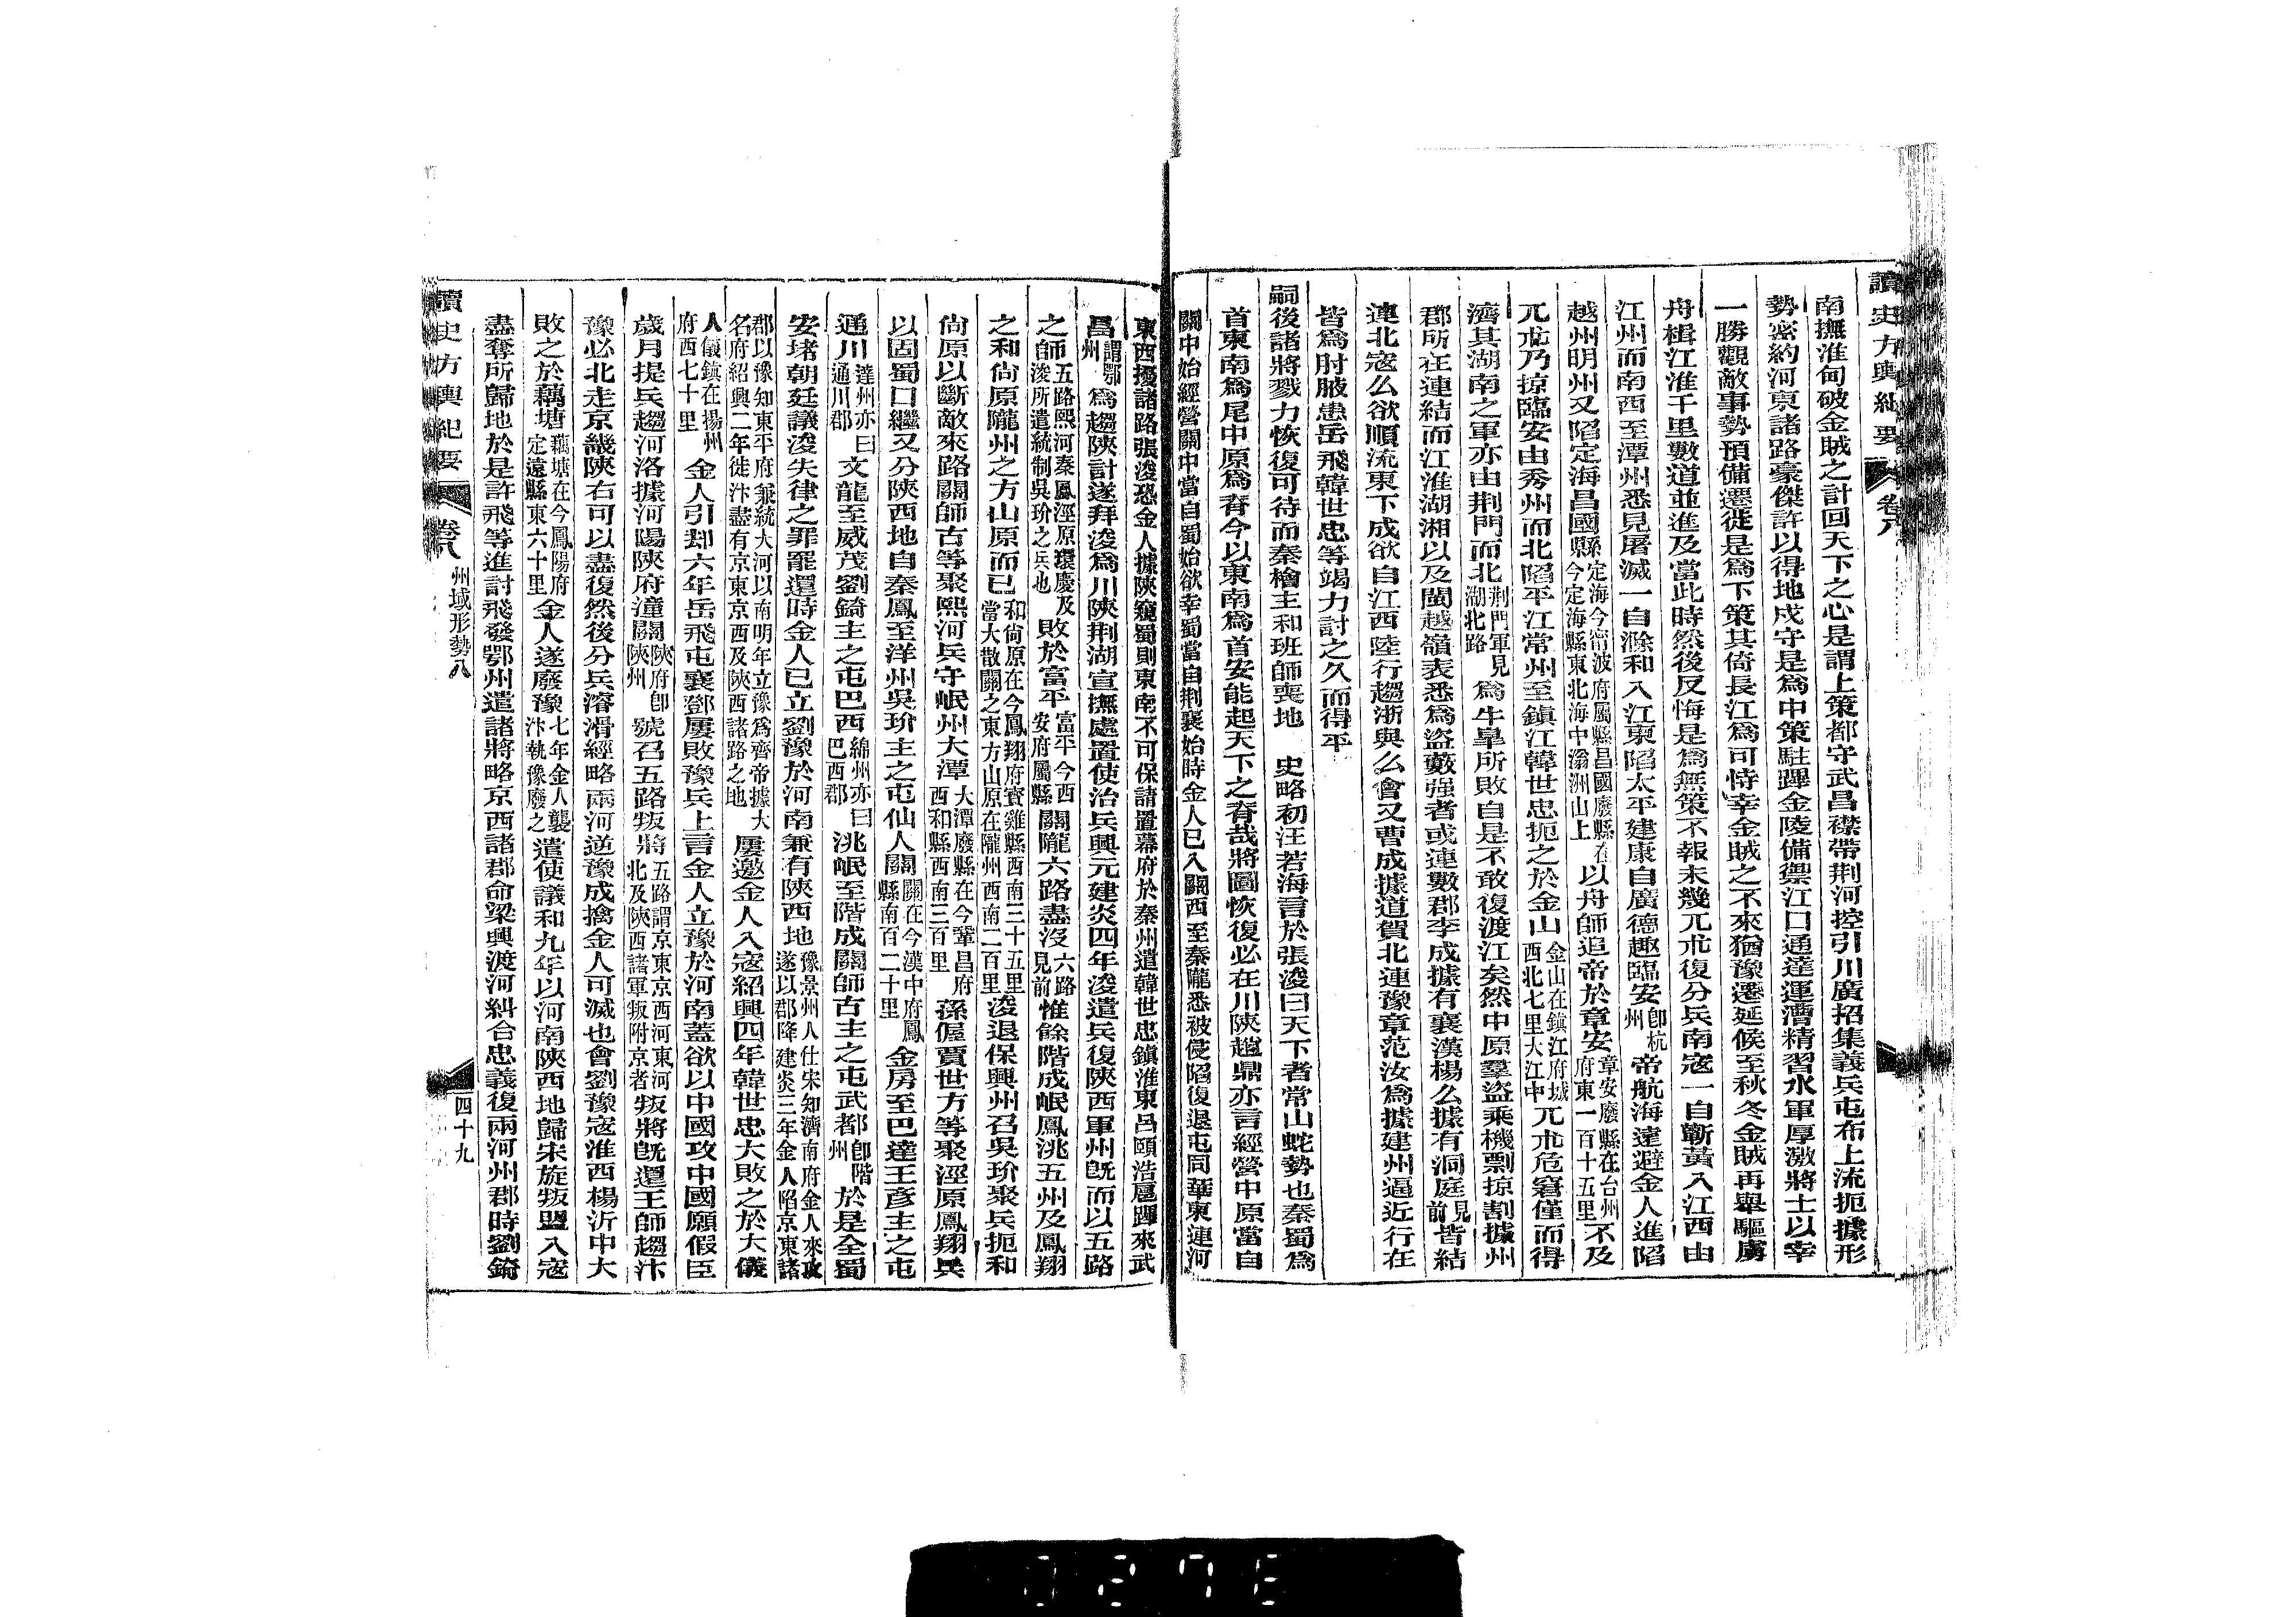 讀史方輿紀要 卷八
南撫淮甸破金賊之計回天下之心是謂上策都守武昌襟帶荆河控引川廣招集義兵屯布上流扼據形
勢密約河東諸路豪傑許以得地戍守是爲中策駐蹕金陵備禦江口通達運漕精習水軍厚激將士以幸
一勝觀敵事勢預備遷徙是爲下策其倚長江爲可恃幸金賊之不來猶豫遷延候至秋冬金賊再舉驅虜
舟楫江淮千里數道並進及當此時然後反悔是爲無策不報未幾兀朮復分兵南寇一自蘄黃入江西由
江州而南西至潭州悉見屠滅一自滁和入江東陷太平建康自廣德趣臨安卽杭州帝航海遠避金人進陷
越州明州又陷定海昌國縣定海今甯波府屬縣昌國廢縣在今定海縣東北海中滃洲山上以舟師追帝於章安章安廢縣在台州府東一百十五里不及
兀朮乃掠臨安由秀州而北陷平江常州至鎭江韓世忠扼之於金山金山在鎭江府城西北七里大江中兀朮危窘僅而得
濟其湖南之軍亦由荆門而北荆門軍見湖北路爲牛臯所敗自是不敢復渡江矣然中原羣盜乘機剽掠割據州
郡所在連結而江淮湖湘以及閩越嶺表悉爲盜藪强者或連數郡李成據有襄漢楊么據有洞庭見前皆結
連北寇么欲順流東下成欲自江西陸行趨浙與么會又曹成據道賀北連豫章范汝爲據建州逼近行在
皆爲肘腋患岳飛韓世忠等竭力討之久而得平
嗣後諸將戮力恢復可待而秦檜主和班師喪地 史略初汪若海言於張浚曰天下者常山蛇勢也秦蜀爲
首東南爲尾中原爲脊今以東南爲首安能起天下之脊哉將圖恢復必在川陝趙鼎亦言經營中原當自
關中始經營關中當自蜀始欲幸蜀當自荆襄始時金人已入關西至秦隴悉被侵陷復退屯同華東連河
東西擾諸路張浚恐金人據陝窺蜀則東南不可保請置幕府於秦州遣韓世忠鎭淮東呂頤浩扈蹕來武
昌謂鄂州爲趨陝計遂拜浚爲川陝荆湖宣撫處置使治兵興元建炎四年浚遣兵復陝西軍州旣而以五路
之師五路熙河秦鳳涇原環慶及浚所遣統制吳玠之兵也敗於富平富平今西安府屬縣關隴六路盡沒六路見前惟餘階成岷鳳洮五州及鳳翔
之和尙原隴州之方山原而已和尙原在今鳳翔府寶雞縣西南三十五里當大散關之東方山原在隴州西南二百里浚退保興州召吳玠聚兵扼和
尙原以斷敵來路關師古等聚熙河兵守岷州大潭大潭廢縣在今鞏昌府西和縣西南三百里孫偓賈世方等聚涇原鳳翔兵
以固蜀口繼又分陝西地自秦鳳至洋州吳玠主之屯仙人關關在今漢中府鳳縣南百二十里金房至巴達王彥主之屯
通川達州亦曰通川郡文龍至威茂劉錡主之屯巴西綿州亦曰巴西郡洮岷至階成關師古主之屯武都卽階州於是全蜀
安堵朝廷議浚失律之罪罷還時金人已立劉豫於河南兼有陝西地豫景州人仕宋知濟南府金人來攻遂以郡降建炎三年金人陷京東諸
郡以豫知東平府兼統大河以南明年立豫爲齊帝據大名府紹興二年徙汴盡有京東京西及陝西諸路之地屢邀金人入寇紹興四年韓世忠大敗之於大儀
大儀鎭在揚州府西七十里金人引却六年岳飛屯襄鄧屢敗豫兵上言金人立豫於河南蓋欲以中國攻中國願假臣
歲月提兵趨河洛據河陽陝府潼關陝府卽陝州號召五路叛將五路謂京東京西河東河北及陝西諸軍叛附京者叛將旣還王師趨汴
豫必北走京畿陝右可以盡復然後分兵濬滑經略兩河逆豫成擒金人可滅也會劉豫寇淮西楊沂中大
敗之於藕塘藕塘在今鳳陽府定遠縣東六十里金人遂廢豫七年金人襲汴執豫廢之遣使議和九年以河南陝西地歸宋旋叛盟入寇
盡奪所歸地於是許飛等進討飛發鄂州遣諸將略京西諸郡命梁興渡河糾合忠義復兩河州郡時劉錡
讀史方輿紀要 卷八 州域形勢八 四十九